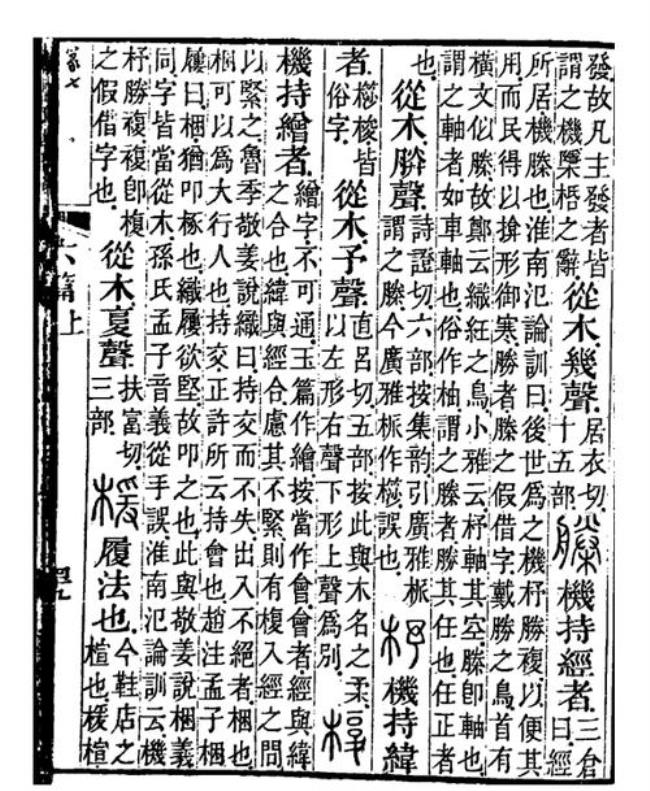 發故凡主發者皆謂之機榘梧之辭從木幾聲居衣切十五部榺機持經者三倉曰經
所居機榺也淮南氾論訓曰後世爲之機杼勝複以便其
用而民得以揜形御寒勝者榺之假借字戴勝之鳥首有
橫文似榺故鄭云織紝之鳥小雅云杼軸其空榺卽軸也
謂之軸者如車軸也俗作柚謂之榺者勝其任也任正者
也從木朕聲詩證切六部按集韵引廣雅謂之榺今廣雅作誤也杼機持緯
者梭皆俗字從木予聲直呂切五部按此與木名之柔以左形右聲下形上聲爲別椱
機持繒者繒字不可通玉篇作繒按當作會會者經與緯之合也緯與經合慮其不緊則有椱入經之間
以緊之魯季敬姜說織曰持交而不失出入不絕者梱也
梱可以爲大行人也持交正許所云持會也趙注孟子梱
屨曰梱猶叩椓也織屨欲堅故叩之也此與敬姜說梱義
同字皆當從木孫氏孟子音義從手誤淮南氾論訓云機
杼勝複複卽椱之假借字也從木复聲扶富切三部楥履法也今鞋店之楦也楥楦
六篇上
四九